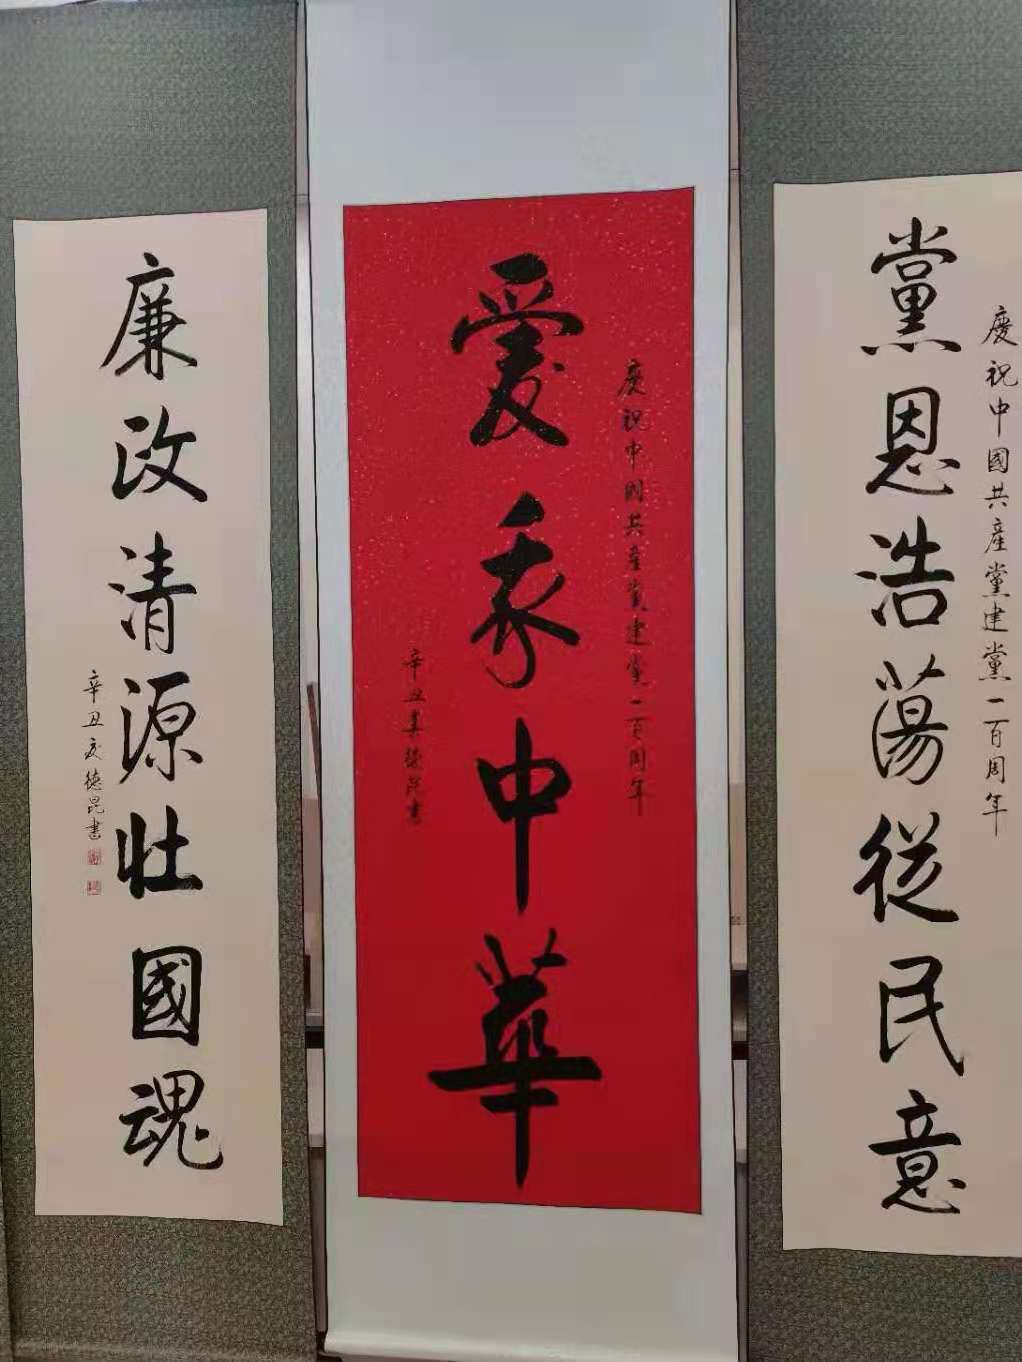 慶祝中國共產黨建黨一百周年
黨恩浩蕩從民意
慶祝中國共產黨建黨一百周年
愛我中華
辛丑德昆書
廉政清源壯國魂
辛丑夏德昆書